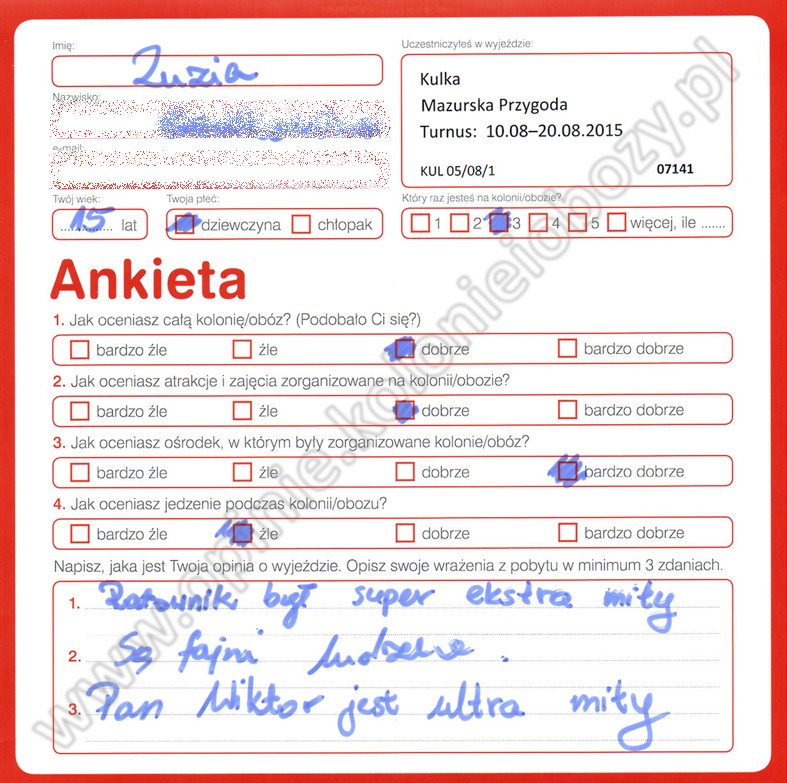 Imię:
Zuzia
Uczestniczyłeś w wyjeździe:
Kulka
Mazurska Przygoda
Turnus: 10.08–20.08.2015
KUL 05/08/1 07141
Nazwisko:
e-mail:
Twój wiek:
15 lat
Twoja płeć:
dziewczyna chłopak
Który raz jesteś na kolonii/obozie?
1 2 3 4 5 więcej, ile .......
Ankieta
1. Jak oceniasz całą kolonię/obóz? (Podobało Ci się?)
bardzo źle źle dobrze bardzo dobrze
2. Jak oceniasz atrakcje i zajęcia zorganizowane na kolonii/obozie?
bardzo źle źle dobrze bardzo dobrze
3. Jak oceniasz ośrodek, w którym były zorganizowane kolonie/obóz?
bardzo źle źle dobrze bardzo dobrze
4. Jak oceniasz jedzenie podczas kolonii/obozu?
bardzo źle źle dobrze bardzo dobrze
Napisz, jaka jest Twoja opinia o wyjeździe. Opisz swoje wrażenia z pobytu w minimum 3 zdaniach.
1. Ratownik był super ekstra miły
2. Są fajni ludzie .
3. Pan Wiktor jest ultra miły
www.opinie.kolonieiobozy.pl